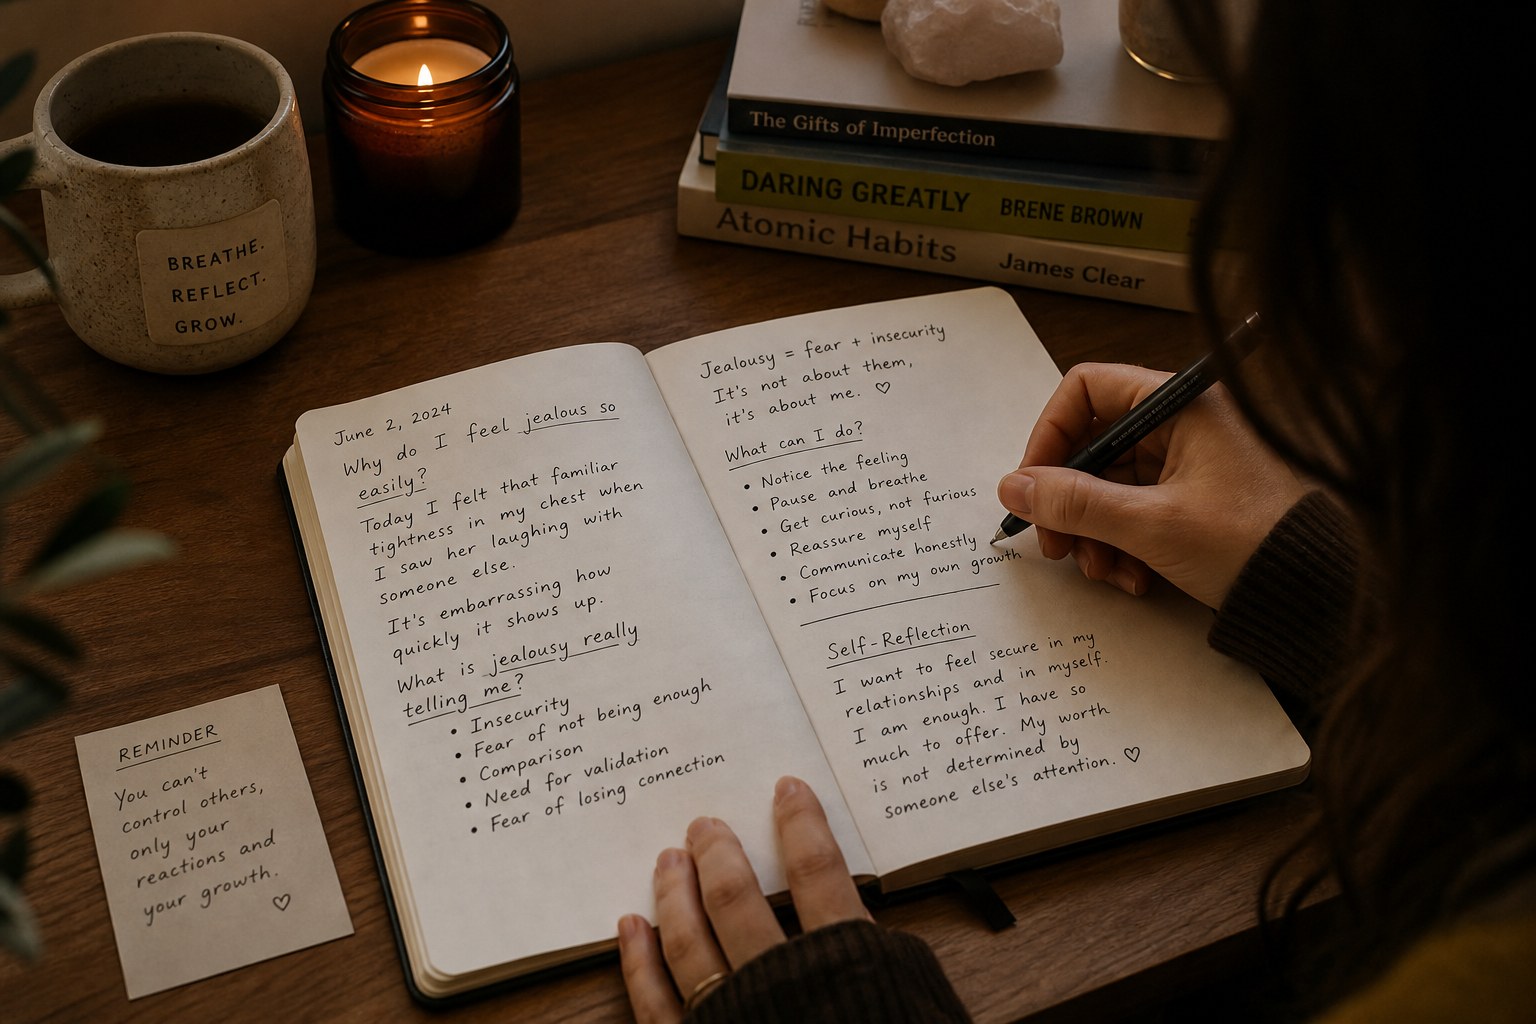 BREATHE.
REFLECT.
GROW.
The Gifts of Imperfection
DARING GREATLY BRENE BROWN
Atomic Habits James Clear
June 2, 2024
Why do I feel jealous so
easily?
Today I felt that familiar
tightness in my chest when
I saw her laughing with
someone else.
It's embarrassing how
quickly it shows up.
What is jealousy really
telling me?
• Insecurity
• Fear of not being enough
• Comparison
• Need for validation
• Fear of losing connection
Jealousy = fear + insecurity
It's not about them,
it's about me. ♡
What can I do?
• Notice the feeling
• Pause and breathe
• Get curious, not furious
• Reassure myself
• Communicate honestly
• Focus on my own growth
Self-Reflection
I want to feel secure in my
relationships and in myself.
I am enough. I have so
much to offer. My worth
is not determined by
someone else's attention. ♡
REMINDER
You can't
control others,
only your
reactions and
your growth.
♡